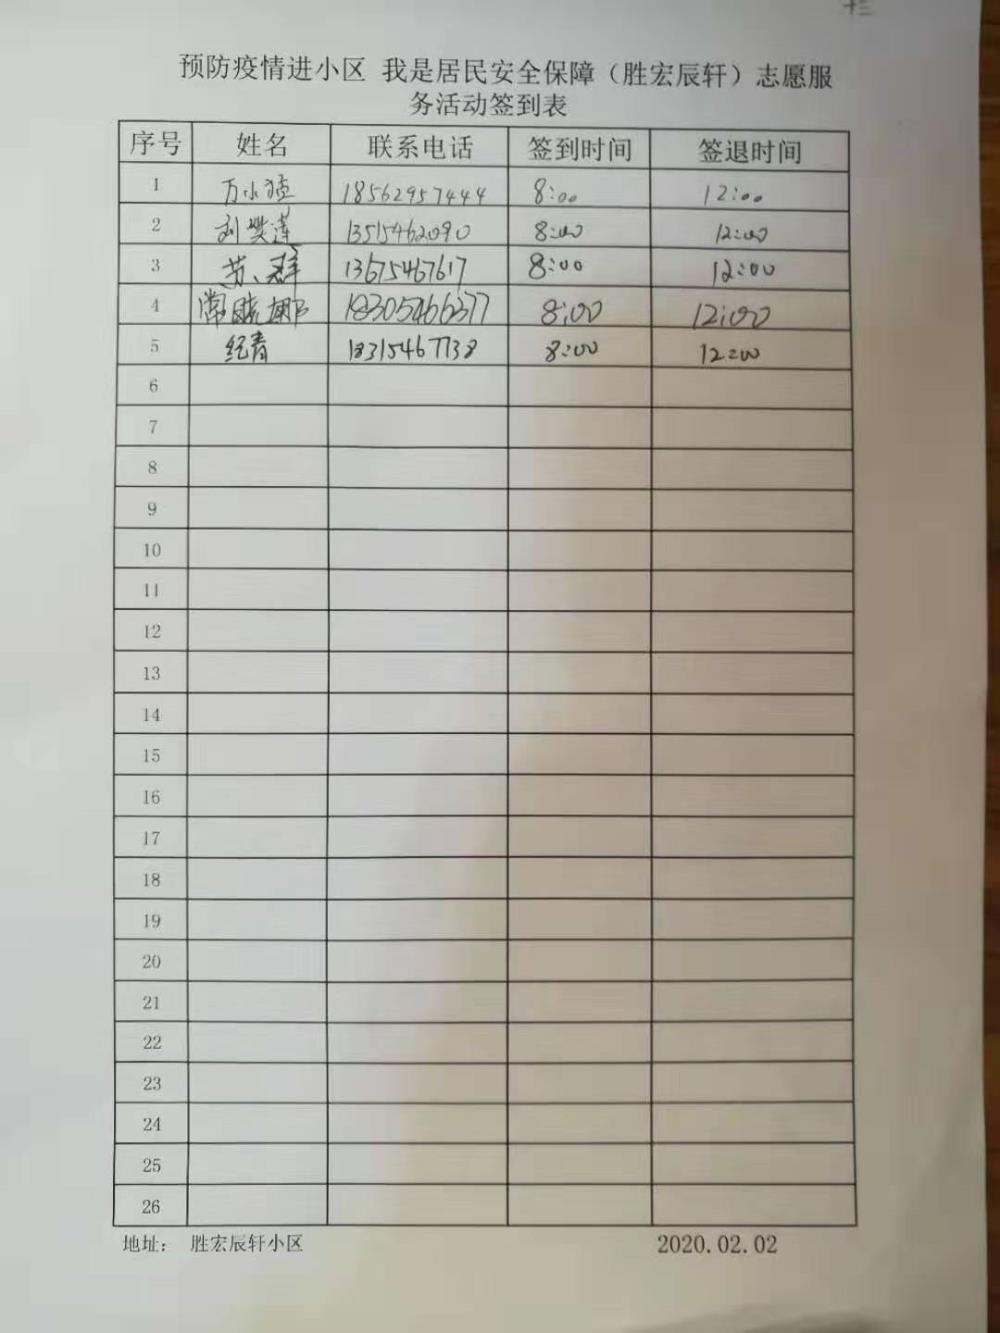 十三
预防疫情进小区 我是居民安全保障（胜宏辰轩）志愿服
务活动签到表
序号 姓名 联系电话 签到时间 签退时间
1 万小猛 18562957444 8:00 12:00
2 刘 莲 13515462090 8:00 12:00
3 苏、群 13675467617 8:00 12:00
4 常晓娜 18305466377 8:00 12:00
5 纪青 18315467738 8:00 12:00
6
7
8
9
10
11
12
13
14
15
16
17
18
19
20
21
22
23
24
25
26
地址： 胜宏辰轩小区 2020.02.02